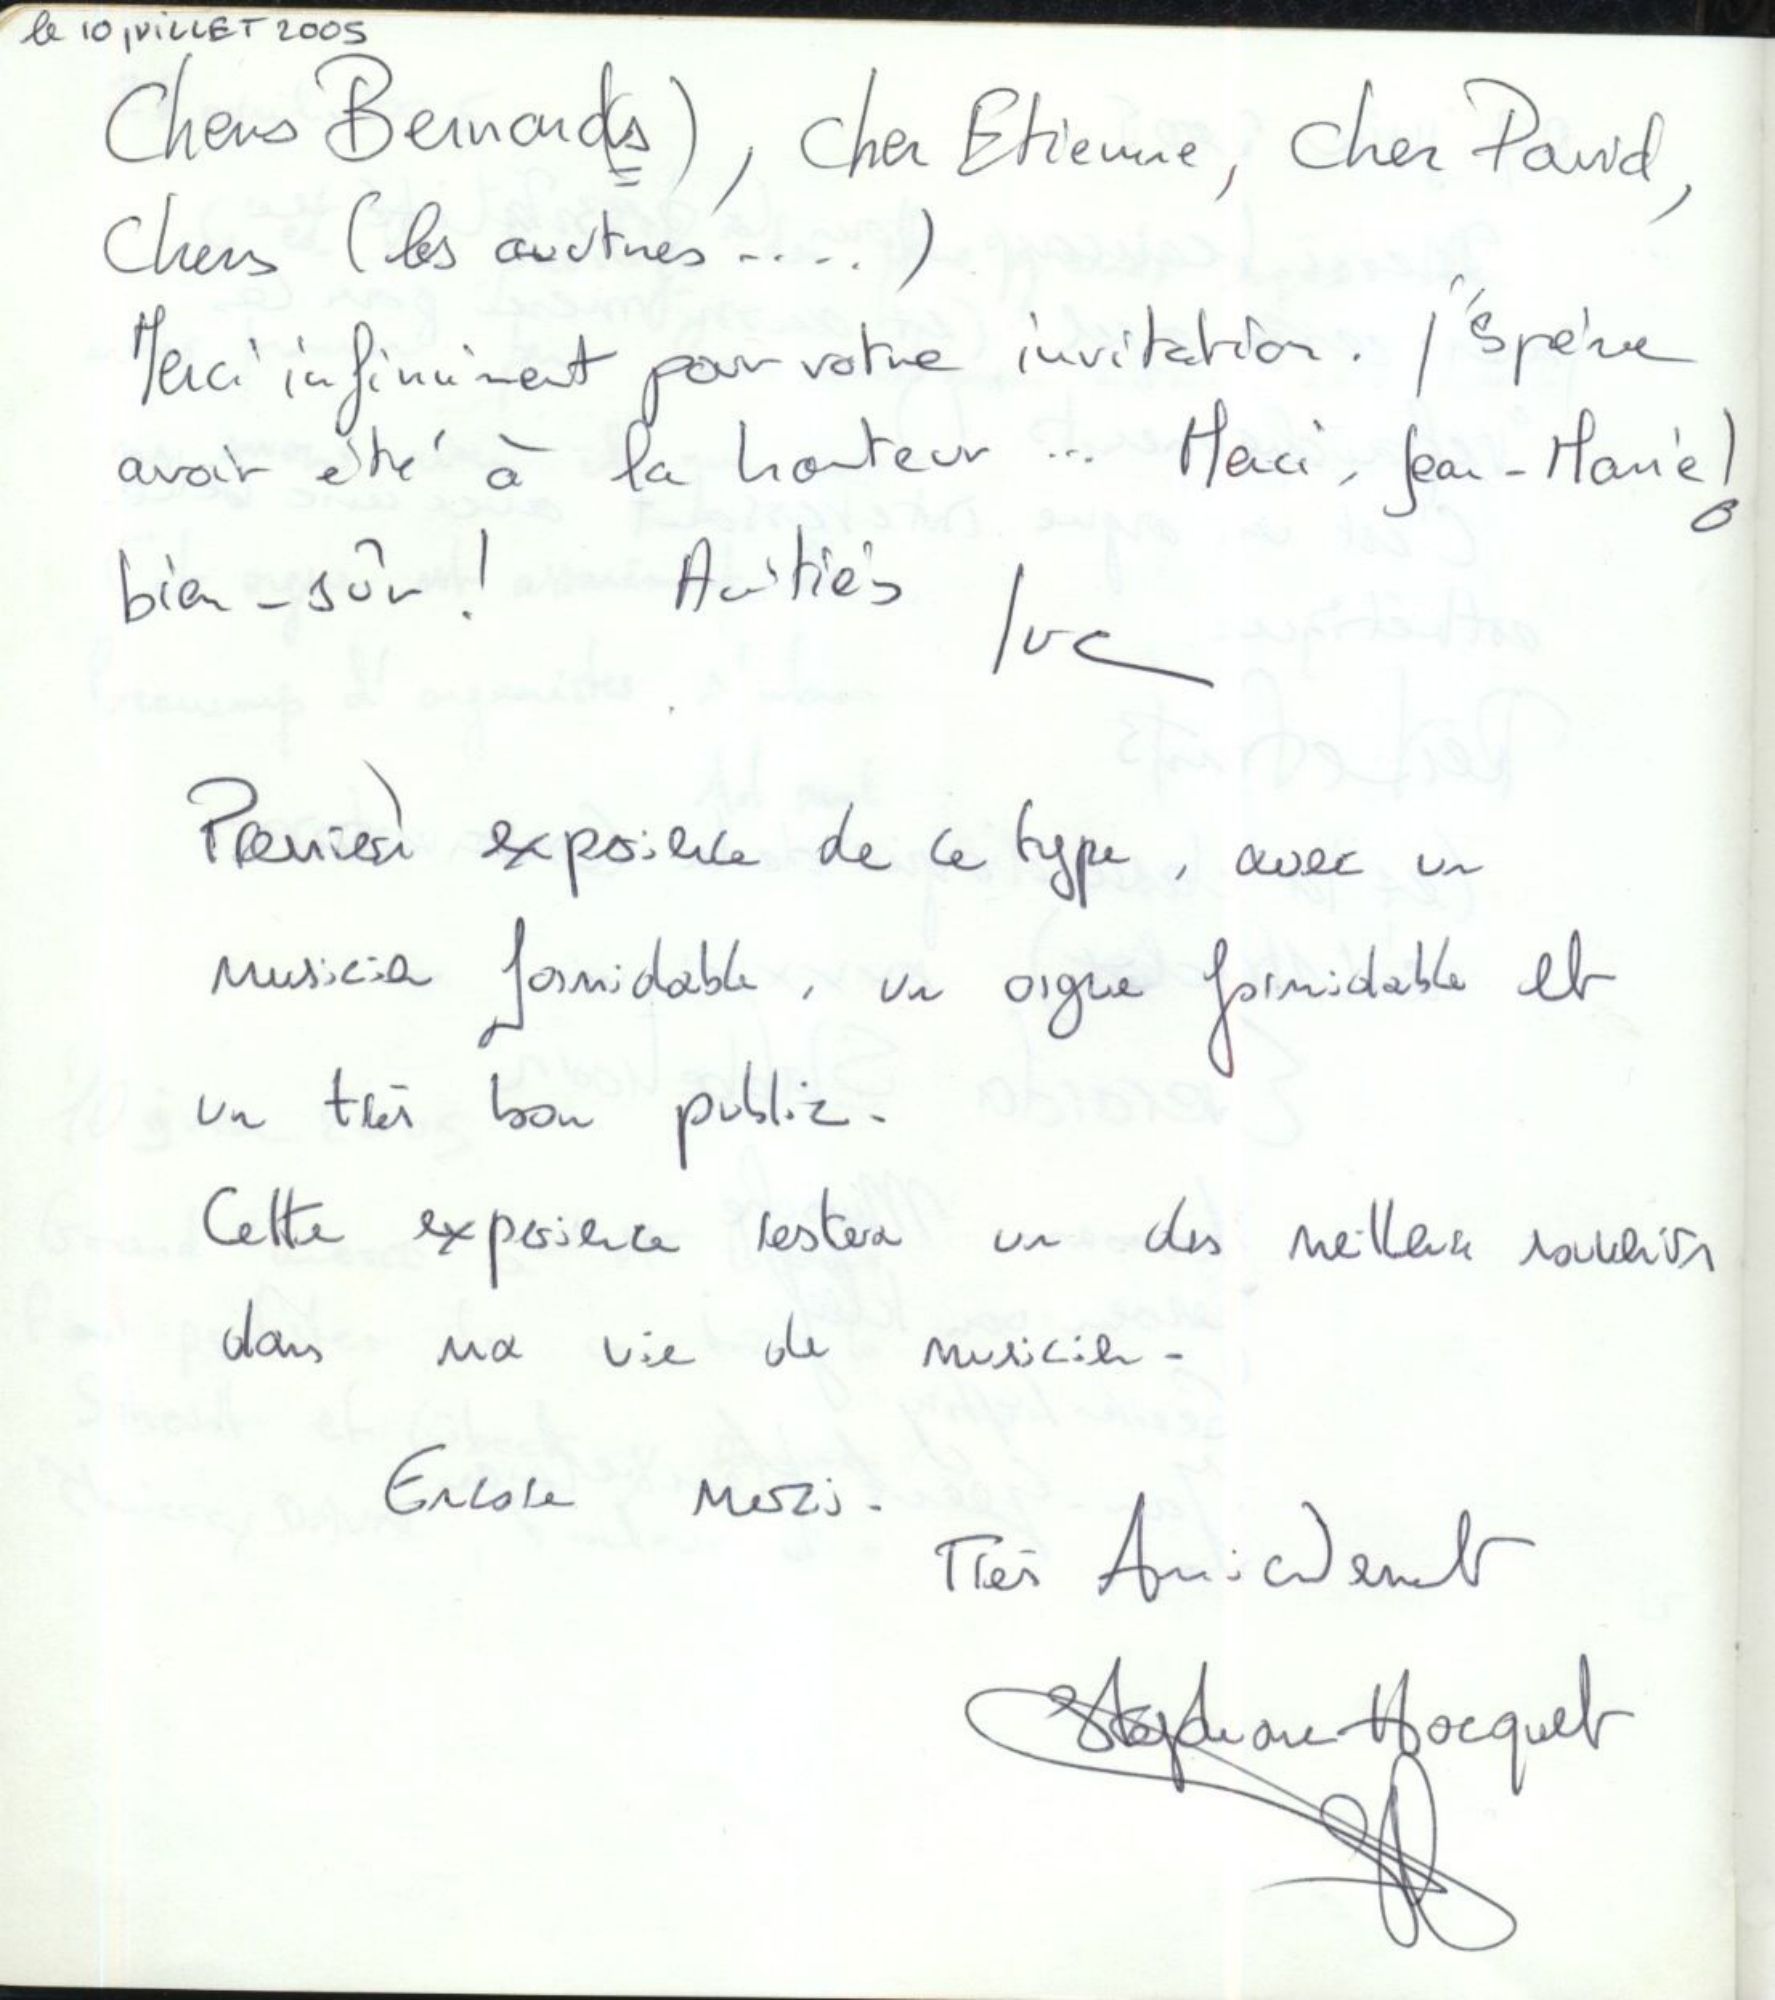 le 10 JUILLET 2005
Chers Bernard(s), cher Etienne, cher David,
chers (les autres.....)
Merci infiniment pour votre invitation. J'espère
avoir été à la hauteur ... Merci, Jean-Marie!
bien-sûr! Amitiés
luc
Première expérience de ce type, avec un
musicien formidable, un orgue formidable et
un très bon public.
Cette expérience restera un des meilleurs souvenirs
dans ma vie de musicien.
Encore merci.
Très Amicalement
Stéphane Hocquet